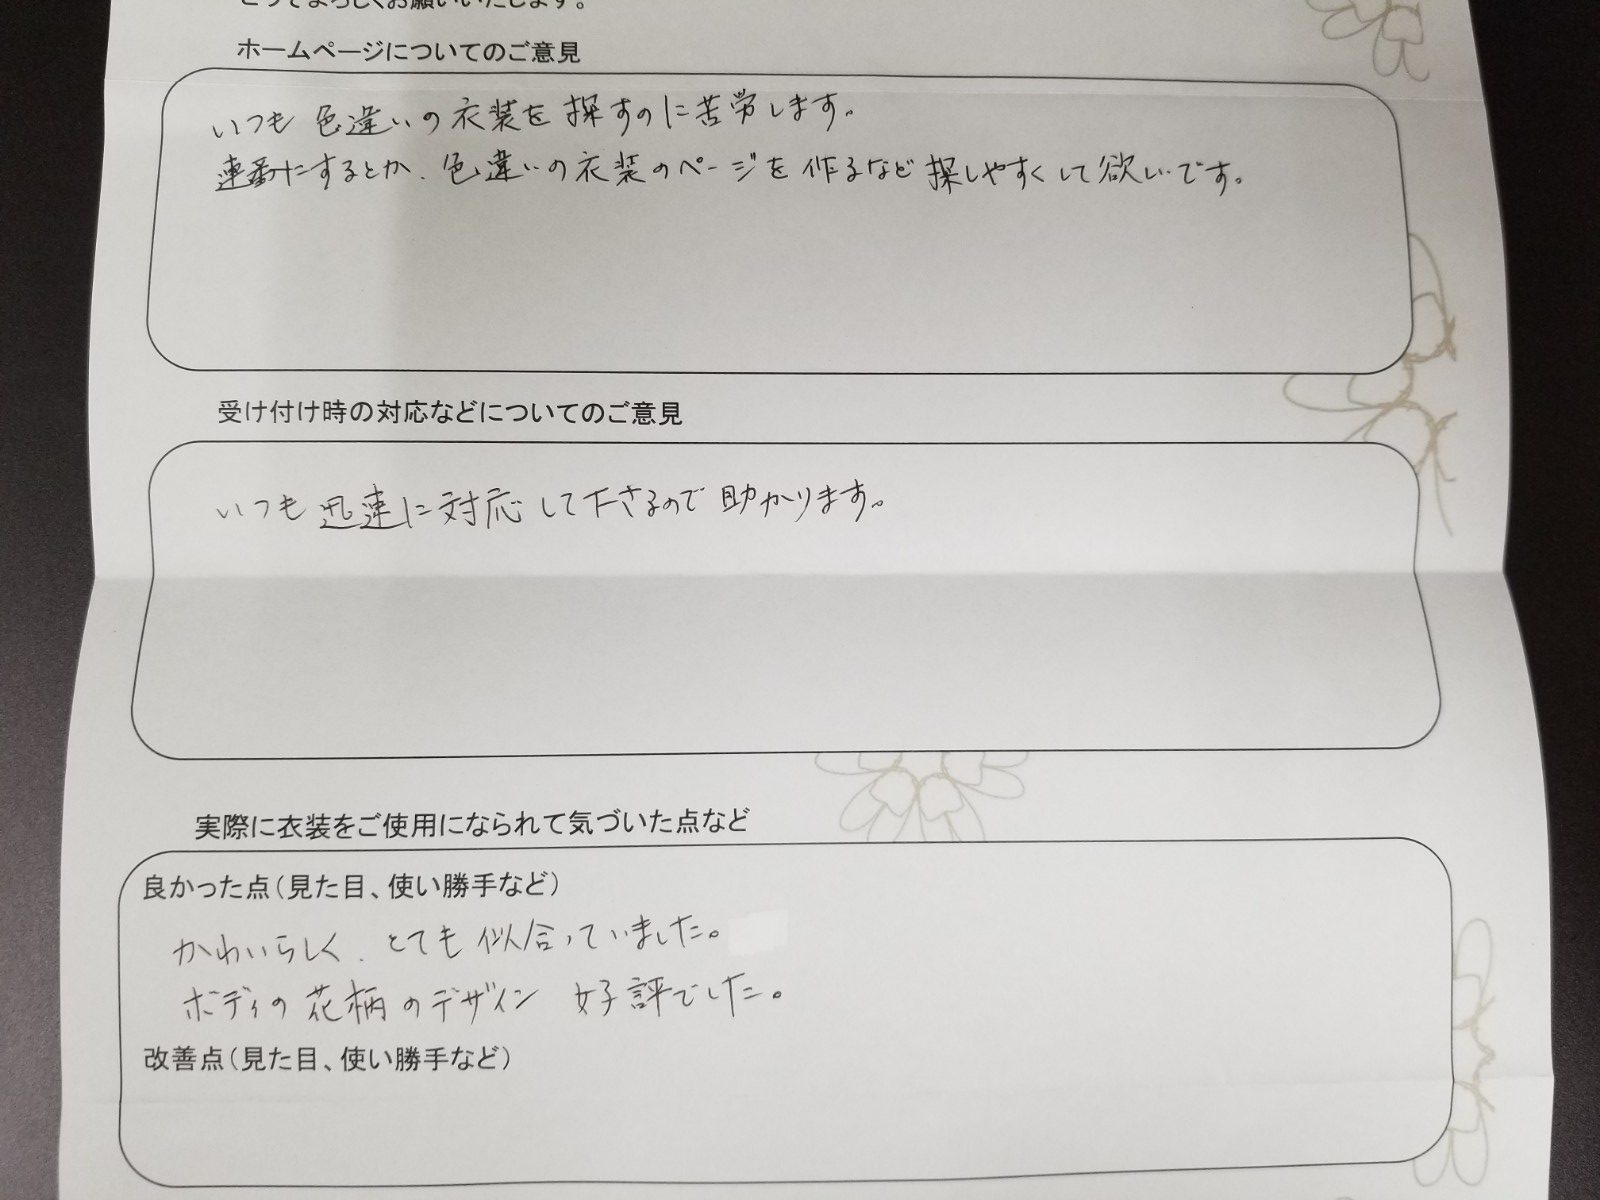 とってよろしくお願いいたします。
ホームページについてのご意見
いつも色違いの衣装を探すのに苦労します。
連番にするとか、色違いの衣装のページを作るなど探しやすくして欲しいです。
受け付け時の対応などについてのご意見
いつも迅速に対応して下さるので助かります。
実際に衣装をご使用になられて気づいた点など
良かった点(見た目、使い勝手など)
かわいらしく、とても似合っていました。
ボディの花柄のデザイン 好評でした。
改善点(見た目、使い勝手など)